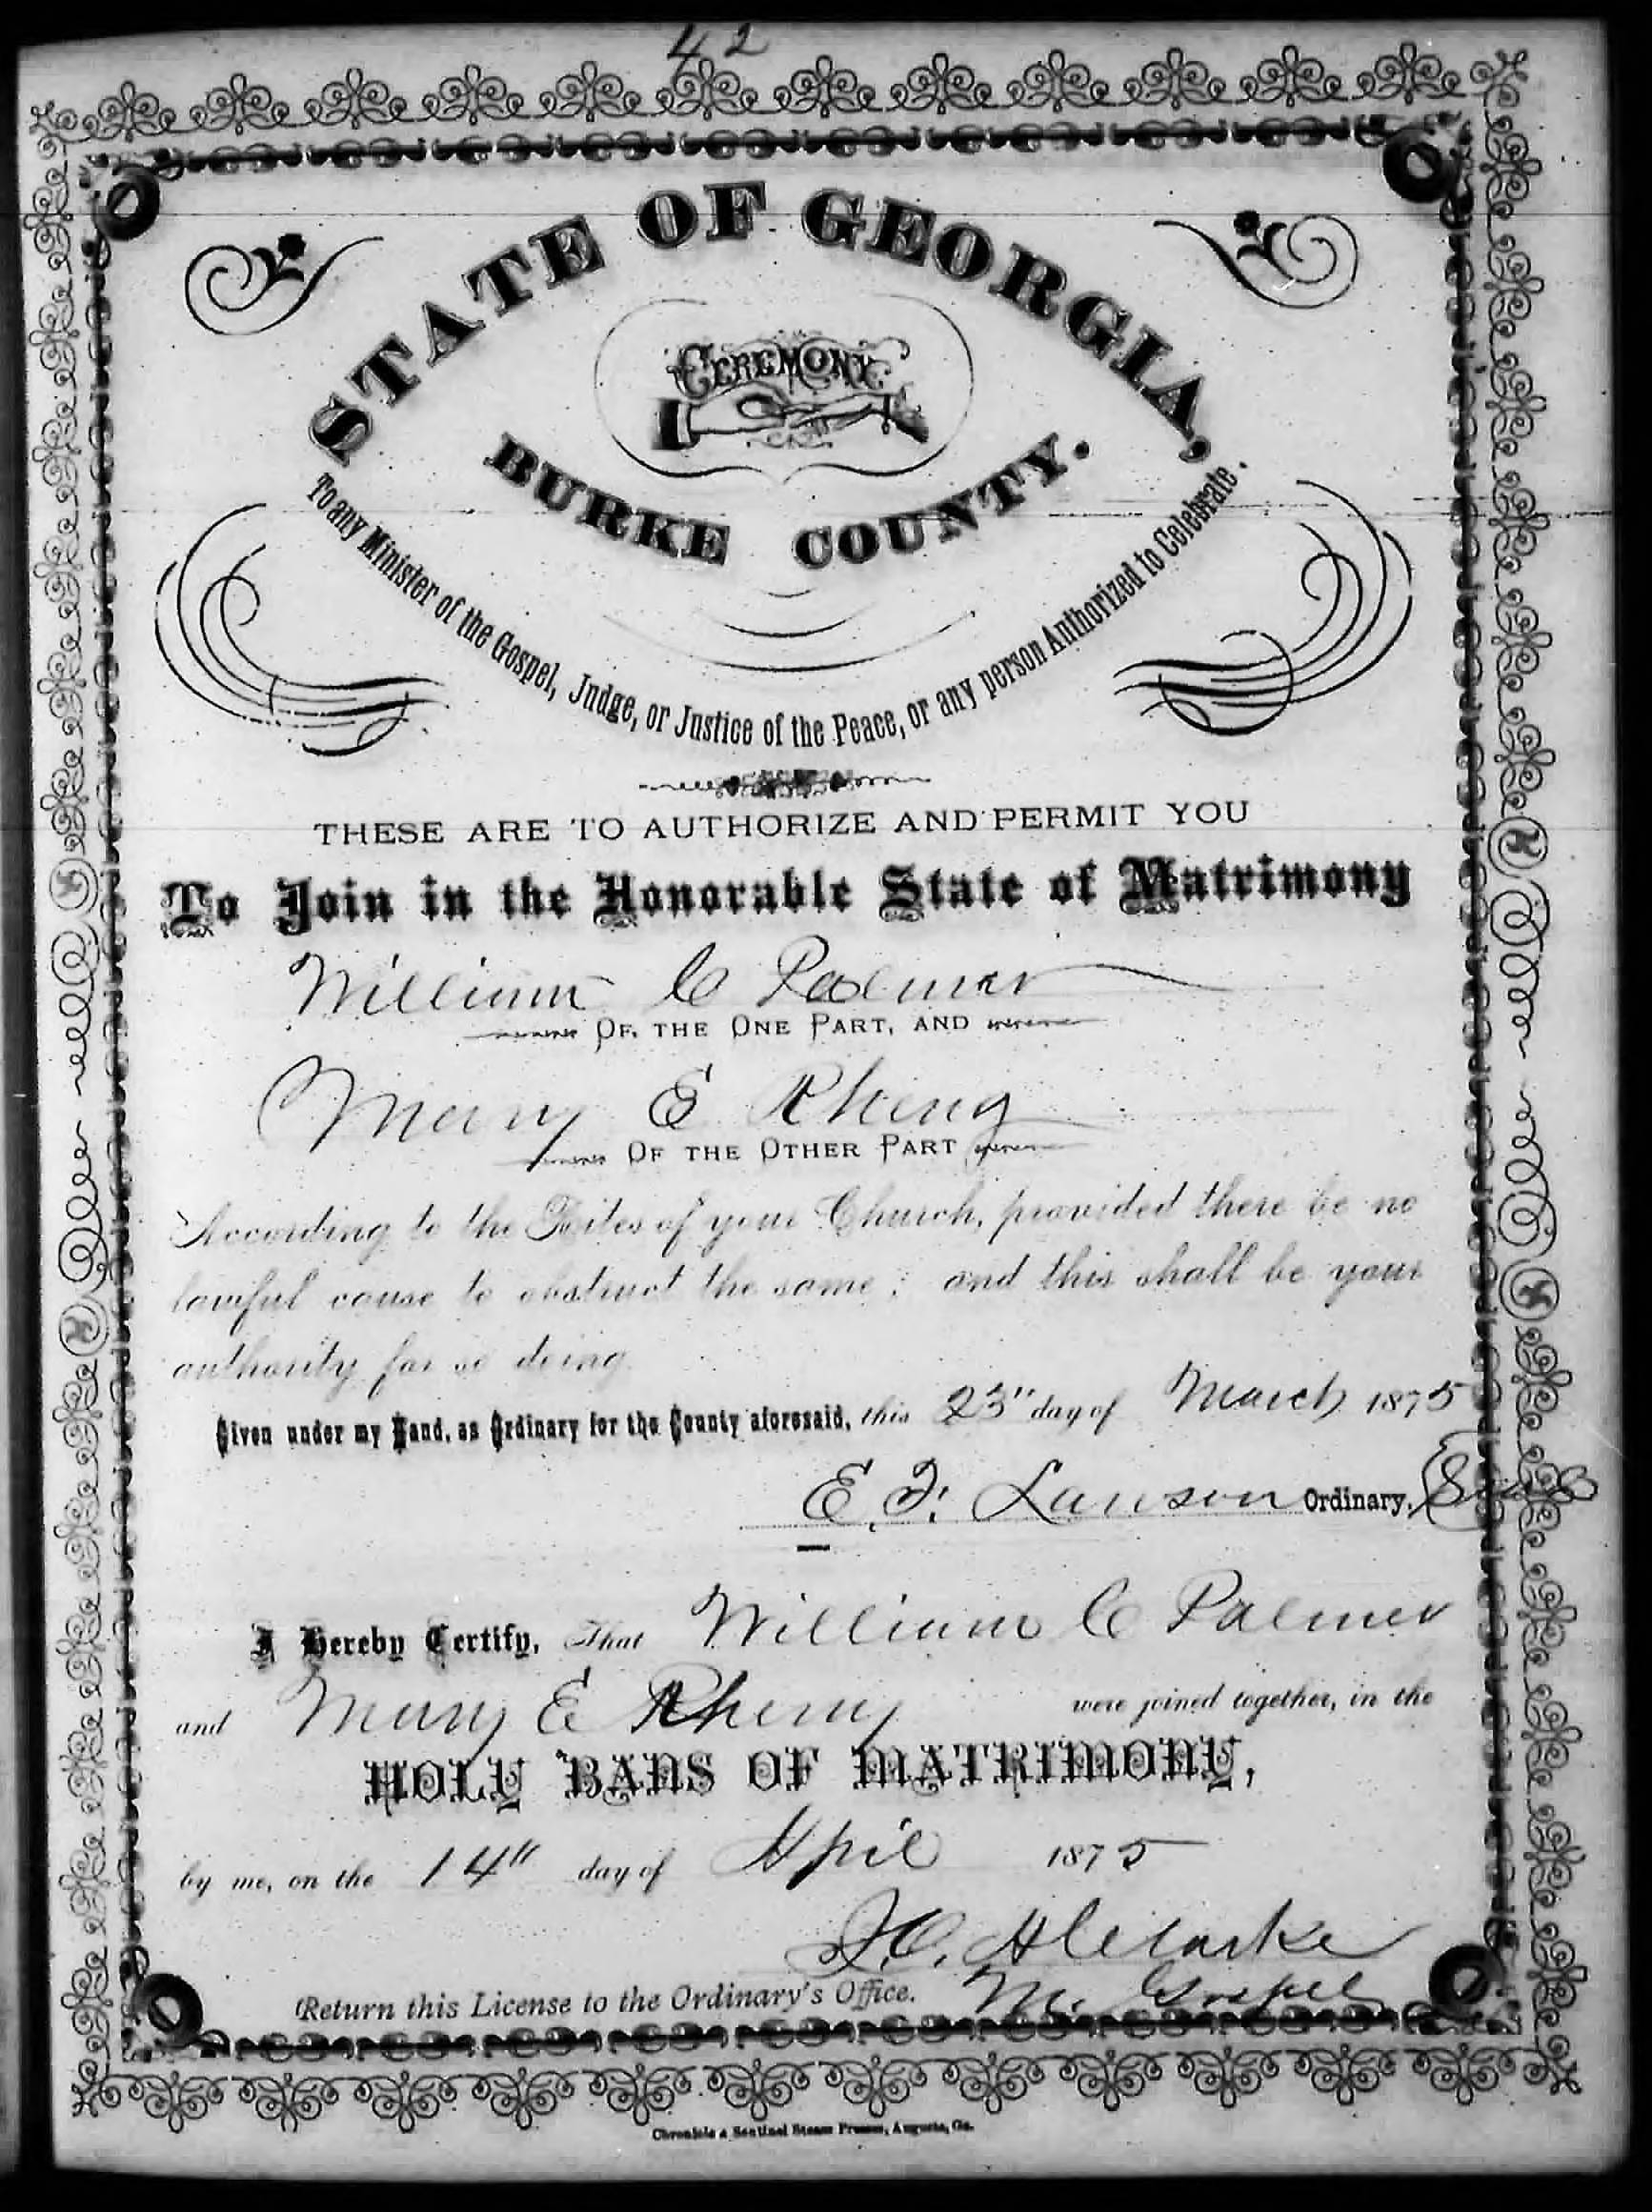 42
STATE OF GEORGIA,
CEREMONY
BURKE COUNTY.
To any Minister of the Gospel, Judge, or Justice of the Peace, or any person Authorized to Celebrate.
THESE ARE TO AUTHORIZE AND PERMIT YOU
To Join in the Honorable State of Matrimony
William C Palmer
OF THE ONE PART, AND
Mary E
OF THE OTHER PART
According to the Rites of your Church, provided there be no
lawful cause to obstruct the same; and this shall be your
authority for so doing.
Given under my Hand, as Ordinary for the County aforesaid, this 23" day of March 1875
E. F. Lawson Ordinary,
I Hereby Certify, That William C Palmer
and Mary E were joined together, in the
HOLY BANS OF MATRIMONY,
by me, on the 14" day of April 1875
Return this License to the Ordinary's Office. M. Gospel
Chronicle & Sentinel Steam Presses, Augusta, Ga.